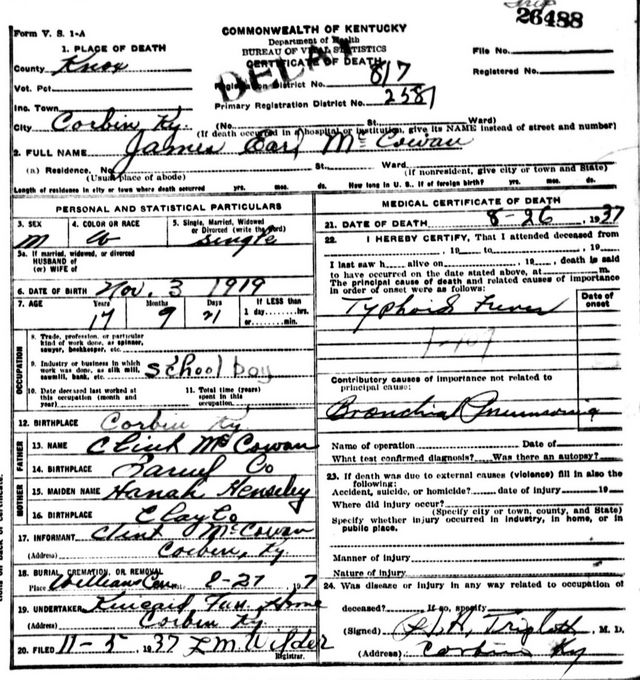 26488
Form V. S. 1-A
COMMONWEALTH OF KENTUCKY
Department of Health
BUREAU OF VITAL STATISTICS
CERTIFICATE OF DEATH
DELAY
1. PLACE OF DEATH
County Knox
File No.
Registered No.
Vot. Pct.
Registration District No. 817
Inc. Town
Primary Registration District No. 2581
City Corbin Ky. (No. St. Ward)
(If death occurred in a hospital or institution, give its NAME instead of street and number)
2. FULL NAME James Earl McCowan
(a) Residence. No. St. Ward.
(Usual place of abode) (If nonresident, give city or town and State)
Length of residence in city or town where death occurred yrs. mos. ds. How long in U. S., if of foreign birth? yrs. mos. ds.
PERSONAL AND STATISTICAL PARTICULARS
3. SEX 4. COLOR OR RACE 5. Single, Married, Widowed or Divorced (write the word)
M W single
5a. If married, widowed, or divorced
HUSBAND of
(or) WIFE of
6. DATE OF BIRTH Nov. 3 1919
7. AGE Years Months Days If LESS than
17 9 21 1 day, hrs.
or min.
OCCUPATION
8. Trade, profession, or particular
kind of work done, as spinner,
sawyer, bookkeeper, etc.
9. Industry or business in which
work was done, as silk mill,
sawmill, bank, etc. School boy
10. Date deceased last worked at
this occupation (month and
year)
11. Total time (years)
spent in this
occupation
12. BIRTHPLACE Corbin Ky
FATHER
13. NAME Clint McCowan
14. BIRTHPLACE Co
MOTHER
15. MAIDEN NAME Hanah Hensley
16. BIRTHPLACE Clay Co
17. INFORMANT Clint McCowan
(Address) Corbin, Ky
18. BURIAL, CREMATION, OR REMOVAL
Place Williams Cem. 8-27 7
19. UNDERTAKER Kincaid Fun. Home
(Address) Corbin Ky.
20. FILED 11-5 1937 Wilder
Registrar.
MEDICAL CERTIFICATE OF DEATH
21. DATE OF DEATH 8-26, 1937
22. I HEREBY CERTIFY, That I attended deceased from
, 19 to , 19
I last saw h alive on , 19 , death is said
to have occurred on the date stated above, at m.
The principal cause of death and related causes of importance
in order of onset were as follows:
Date of
onset
Typhoid Fever
Contributory causes of importance not related to
principal cause:
Bronchial Pneumonia
Name of operation Date of
What test confirmed diagnosis? Was there an autopsy?
23. If death was due to external causes (violence) fill in also the
following:
Accident, suicide, or homicide? date of injury 19
Where did injury occur?
(Specify city or town, county, and State)
Specify whether injury occurred in industry, in home, or in
public place.
Manner of injury
Nature of injury
24. Was disease or injury in any way related to occupation of
deceased? If so, specify
(Signed) M. D.
(Address) Corbin Ky